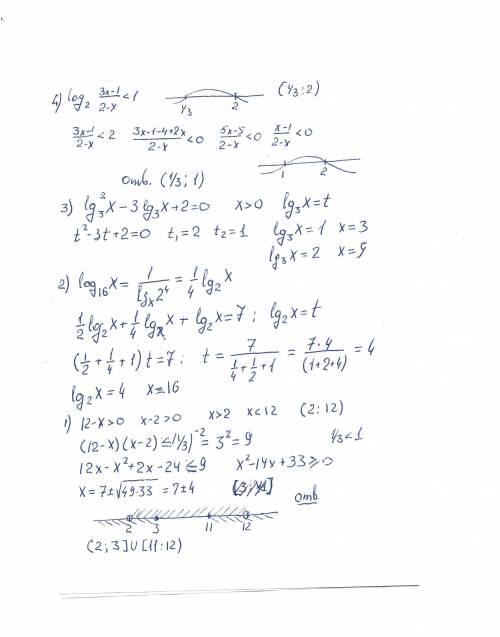 4) log₂ (3x-1)/(2-x) < 1 1/3 2 (1/3; 2)
(3x-1)/(2-x) < 2 (3x-1-4+2x)/(2-x) < 0 (5x-5)/(2-x) < 0 (x-1)/(2-x) < 0
1 2
Отв. (1/3; 1)
3) lg₃²x - 3lg₃x + 2 = 0 x>0 lg₃x = t
t² - 3t + 2 = 0 t₁ = 2 t₂ = 1 lg₃x = 1 x = 3
lg₃x = 2 x = 9
2) log₁₆x = 1/(lgₓ2⁴) = 1/4 lg₂x
1/2 log₂x + 1/4 lg₂x + lg₂x = 7; lg₂x = t
(1/2 + 1/4 + 1) t = 7; t = 7/(1/4 + 1/2 + 1) = 7·4/(1+2+4) = 4
lg₂x = 4 x = 16
1) 12-x>0 x-2>0 x>2 x<12 (2; 12)
(12-x)(x-2) ≤ (1/3)⁻² = 3² = 9 1/3 < 1
12x - x² + 2x - 24 ≤ 9 x² - 14x + 33 ≥ 0
x = 7±√49-33 = 7±4
Отв
2 3 11 12
(2; 3]∪[11; 12)